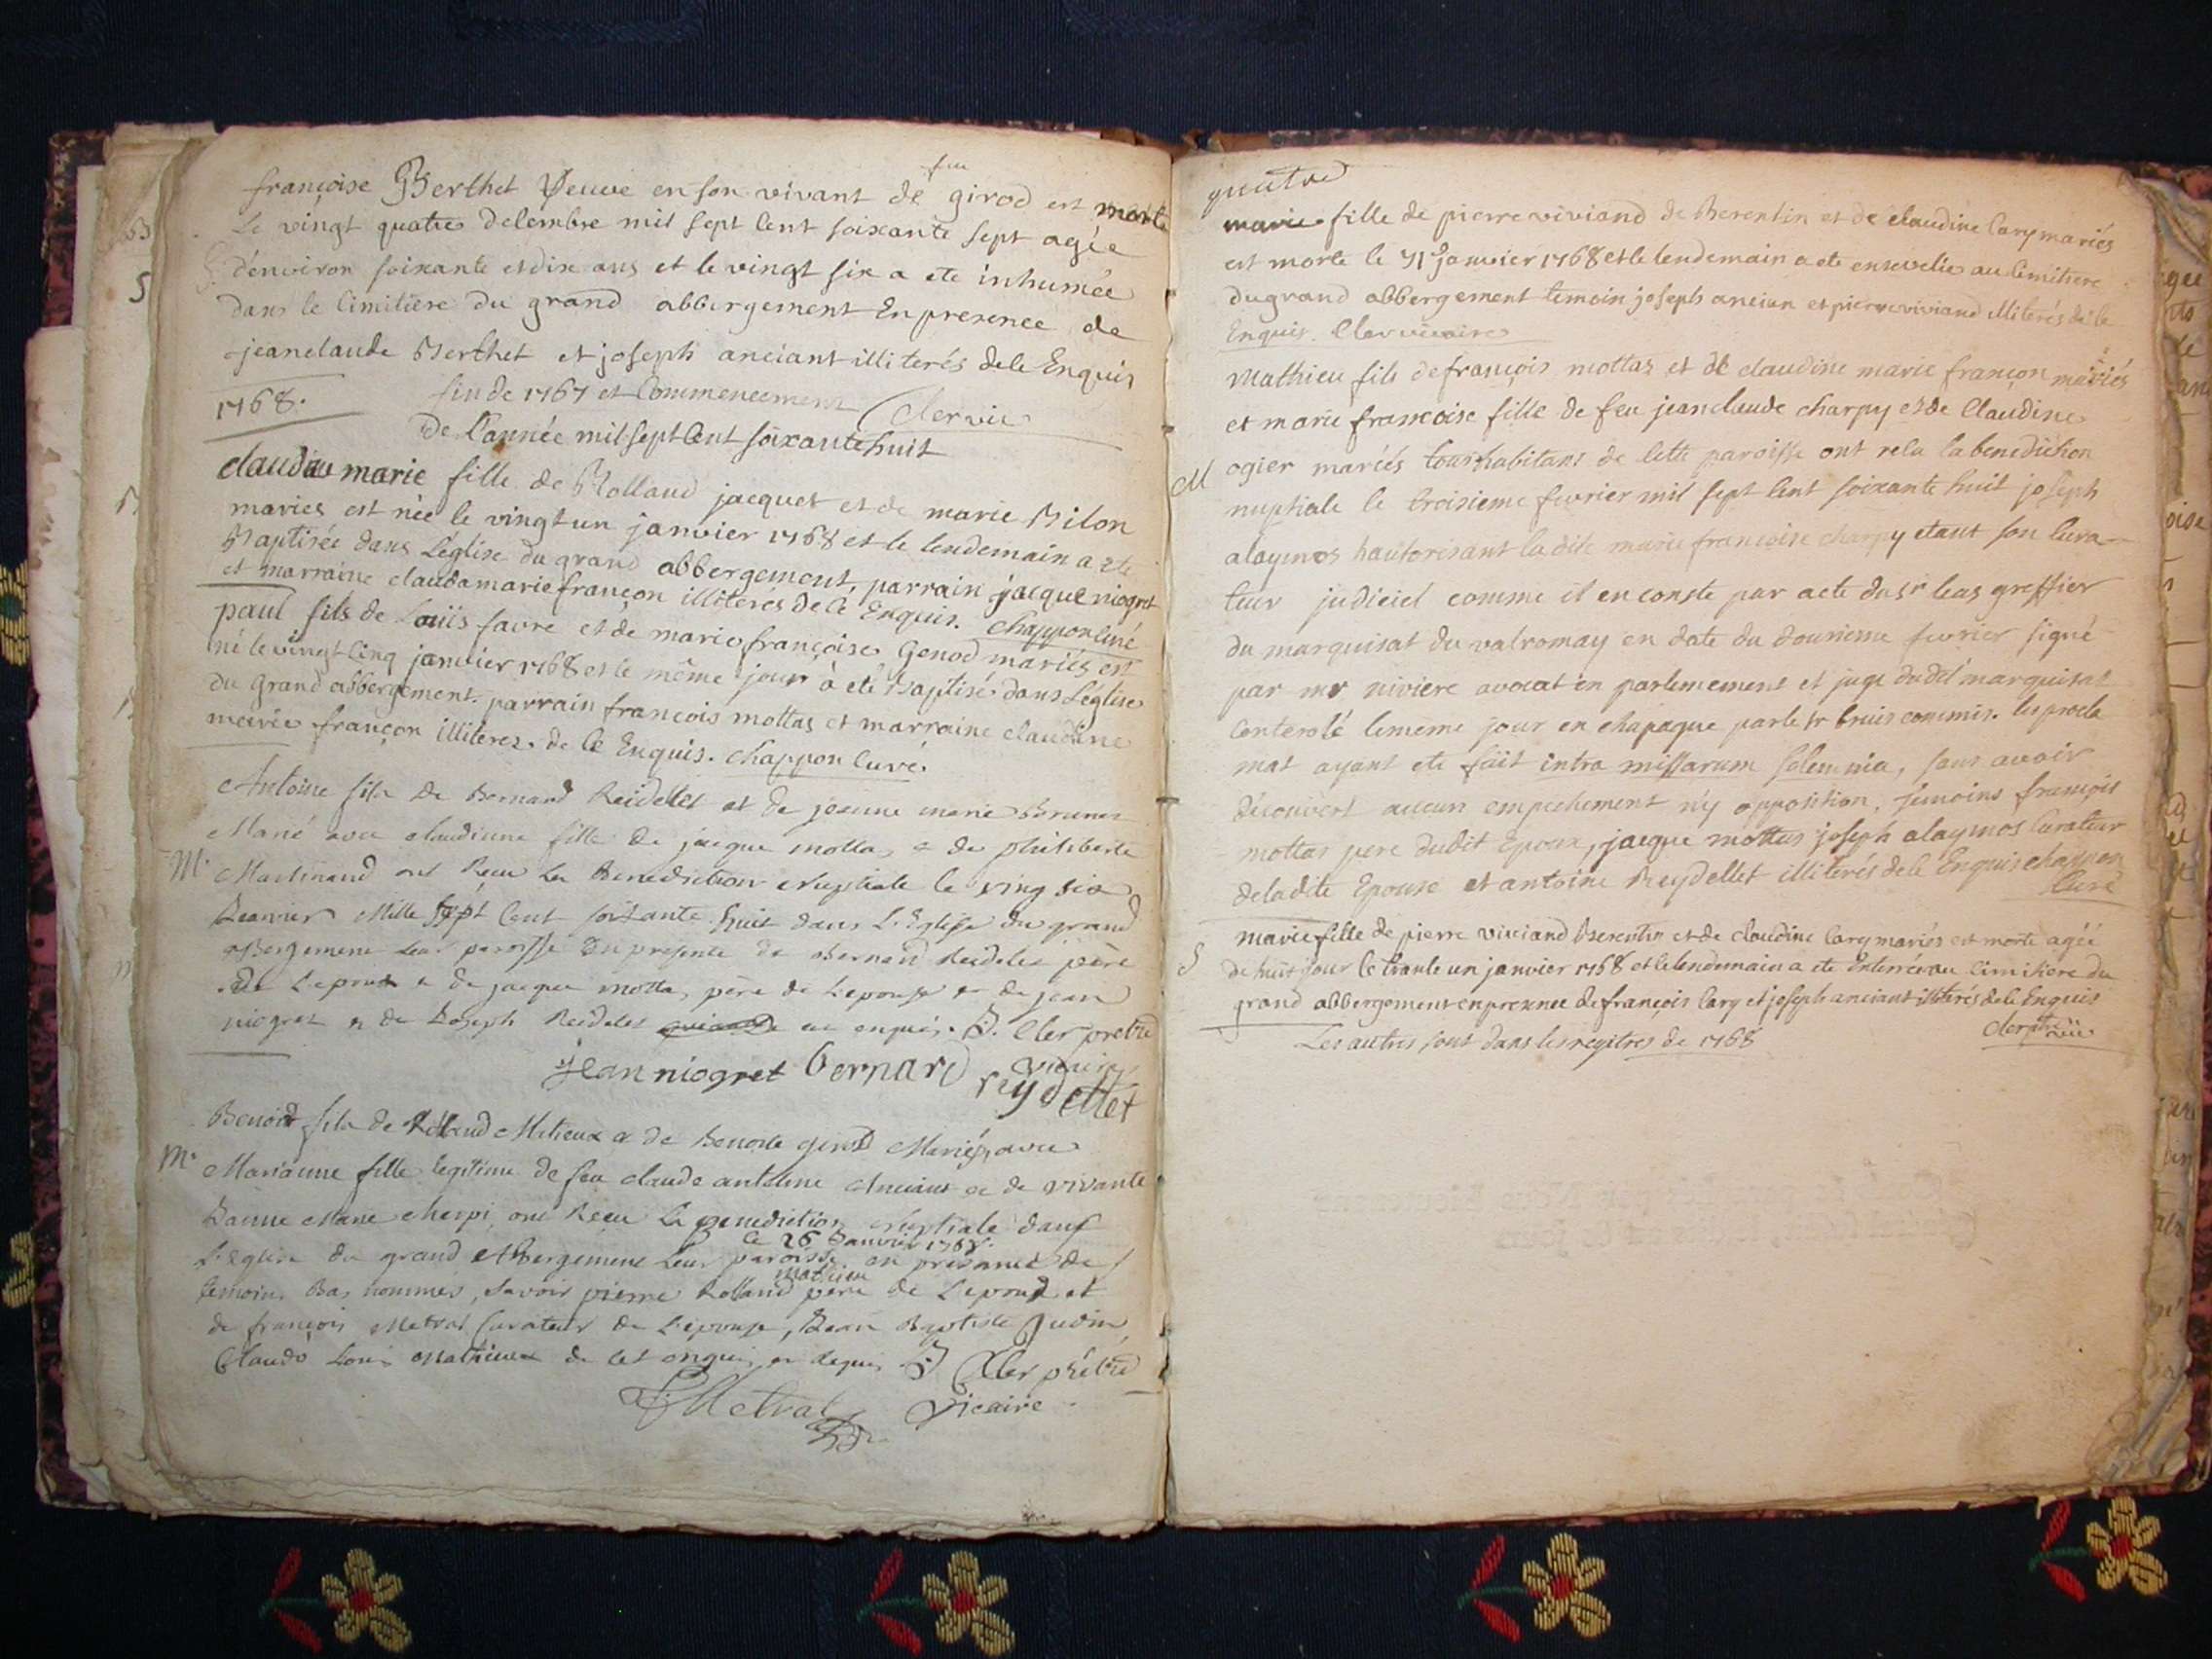 feu
françoise Berthet Veuve en son vivant de girod est morte
Le vingt quatre decembre mil sept cent soixante sept agée
d'environ soixante et dix ans et le vingt six a ete inhumée
dans le cimitiere du grand abbergement En presence de
jeanclaude Berthet et joseph anciant illiterés de le Enquis
1768. fin de 1767 et Commencement Clervic
De L'année mil sept cent soixante huit
claudine marie fille de Rolland jacquet et de marie Bilon
mariés est née le vingt un janvier 1768 et le lendemain a ete
Baptisée dans L'église du grand abbergement, parrain jacque niogret
et marraine claudamarie françon illiterés de le Enquis. Chappon curé
paul fils de Louis favre et de marie françoise Genod mariés est
né le vingt cinq janvier 1768 et le même jour à eté Baptisé dans L'église
du Grand abbergement. parrain francois mottas et marraine claudine
marie françon illiterez. de le Enquis. Chappon Curé.
Antoine fils de Bernard Reidelet et de jeanne marie Brunet
Marié avec claudinne fille de jacque motta, et de philiberte
M. Martinand ont Receu La Benediction Nuptiale le ving six
Jeanvier Mille sept Cent soixante huit dans L'Eglise du grand
aBergement Leur paroisse En presente de Bernard Reidelet père
de L'epoux et de jacque motta, père de L'epouse et de jean
niogret et de Joseph Reidelet ce enquis. J. Cler pretre
vicaire
jean niogret bernard reydellet
Benoit fils de Rolland Matieux et de Benoite girod Mariés, avec
M. Marianne fille legitime de feu claude antoine Anciant et de vivante
Jeanne Marie Cherpi ont Receu La Benediction Nuptiale dans
le 26 Janvier 1768.
L'eglise du grand Abbergement Leur paroisse en presance de
mathieu
temoins Bas nommés, Savoir pierre Rolland père de L'epoux et
de françois Metral Curateur de L'epouse, Jean Baptiste Judin,
Claude Louis Mathieux de cet enquis et requis J Cler prêtre
F Metral Vicaire
quatre
marie fille de pierre viviand de Berentin et de claudine Cary mariés
est morte le 31 janvier 1768 et le lendemain a ete ensevelie au Cimitiere
du grand abbergement temoin joseph ancian et pierre viviand illiterés de le
Enquis. Cler vicaire
Mathieu fils de françois mottas et de claudine marie françon mariés
et marie francoise fille de feu jeanclaude charpy et de Claudine
M ogier mariés tous habitans de cette paroisse ont relu la benediction
nuptiale le troisieme fevrier mil sept cent soixante huit joseph
alaymos hautorisant ladite marie francoise charpy etant son cura-
teur judiciel comme il en conste par acte du sr leas greffier
du marquisat du valromay en date du dousieme fevrier signé
par mr niviere avocat en parlemement et juge dudet marquisat
Conterolé le meme jour en chapague par le sr bruis commis. les procla
mas ayant ete fait intra missarum solemnia, sans avoir
découvert aucun empechement n'y opposition, temoins françois
mottas pere dudit Epoux, jacque mottas joseph alaymos Curateur
de ladite Epouse et antoine Reydellet illiterés de le Enquis chappon
Curé
marie fille de pierre viviand Berentin et de claudine Cary mariés est morte agéé
S de huit jour le trante un janvier 1768 et le lendemain a ete Enterrée au Cimitiere du
grand abbergement en presence de françois Cary et joseph anciant illiterés de le Enquis
Cler ptre vic
Les autres sont dans les regitres de 1768